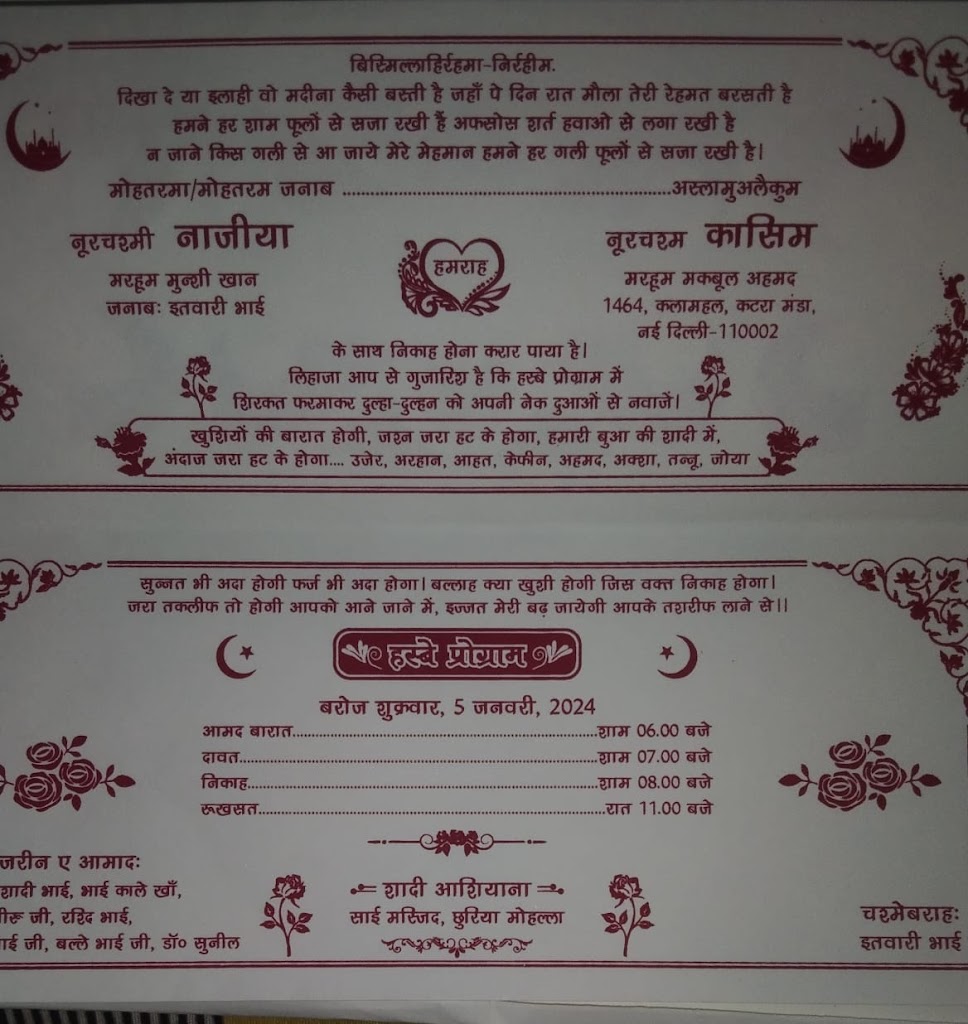 बिस्मिल्लाहिर्रहमा-निर्रहीम.
दिखा दे या इलाही वो मदीना कैसी बस्ती है जहाँ पे दिन रात मौला तेरी रेहमत बरसती है
हमने हर शाम फूलों से सजा रखी हैं अफसोस शर्त हवाओ से लगा रखी है
न जाने किस गली से आ जाये मेरे मेहमान हमने हर गली फूलों से सजा रखी है।
मोहतरमा/मोहतरम जनाब ........................................................अस्लामुअलैकुम
नूरचश्मी नाजीया
मरहूम मुन्शी खान
जनाबः इतवारी भाई
हमराह
नूरचश्म कासिम
मरहूम मकबूल अहमद
1464, कलामहल, कटरा मंडा,
नई दिल्ली-110002
के साथ निकाह होना करार पाया है।
लिहाजा आप से गुजारिश है कि हस्बे प्रोग्राम में
शिरकत फरमाकर दुल्हा-दुल्हन को अपनी नेक दुआओं से नवाजें।
खुशियों की बारात होगी, जश्न जरा हट के होगा, हमारी बुआ की शादी में,
अंदाज जरा हट के होगा.... उजेर, अरहान, आहत, केफीन, अहमद, अक्शा, तन्नू, जोया
सुन्नत भी अदा होगी फर्ज भी अदा होगा। बल्लाह क्या खुशी होगी जिस वक्त निकाह होगा।
जरा तकलीफ तो होगी आपको आने जाने में, इज्जत मेरी बढ़ जायेगी आपके तशरीफ लाने से।।
हस्बे प्रोग्राम
बरोज शुक्रवार, 5 जनवरी, 2024
आमद बारात............................................................शाम 06.00 बजे
दावत............................................................शाम 07.00 बजे
निकाह............................................................शाम 08.00 बजे
रूखसत............................................................रात 11.00 बजे
जरीन ए आमादः
शादी भाई, भाई काले खाँ,
रशिद भाई,
जी, बल्ले भाई जी, डॉ० सुनील
शादी आशियाना
साई मस्जिद, छुरिया मोहल्ला
चश्मेबराहः
इतवारी भाई